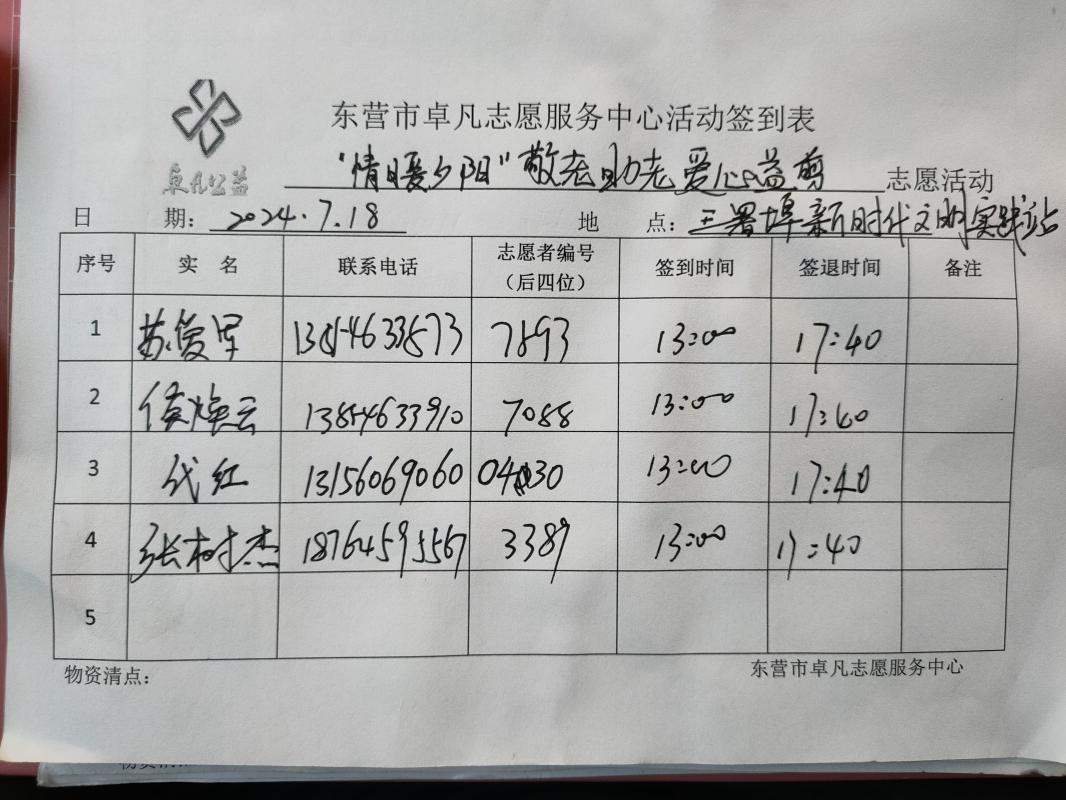 卓凡公益
东营市卓凡志愿服务中心活动签到表
“情暖夕阳”敬老助老爱心益剪 志愿活动
日 期: 2024.7.18 地 点: 三署埠新时代文明实践站
序号 实 名 联系电话 志愿者编号（后四位） 签到时间 签退时间 备注
1 苏俊军 13854633573 7893 13:00 17:40
2 侯焕云 13854633910 7088 13:00 17:40
3 代红 13156069060 0430 13:00 17:40
4 张树杰 18764595567 3389 13:00 17:40
5
物资清点: 东营市卓凡志愿服务中心